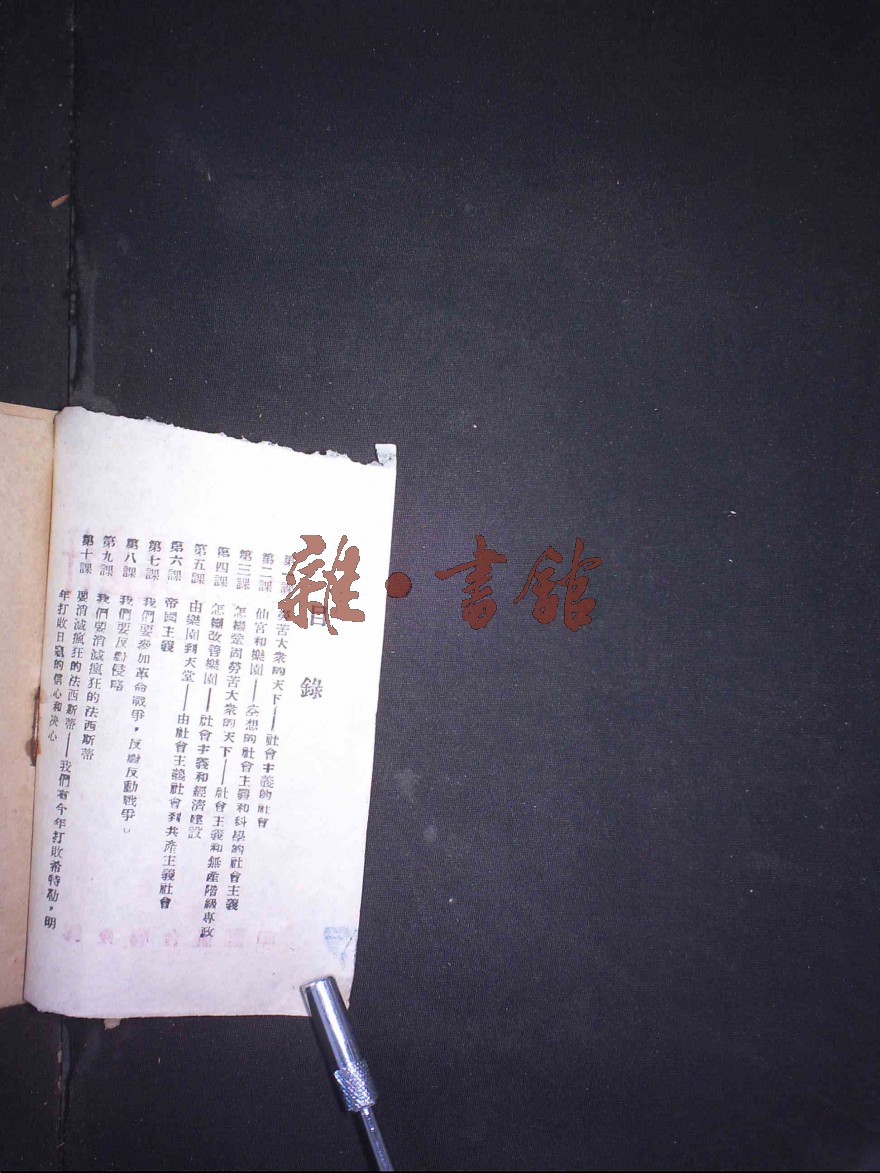 目錄
第一課 勞苦大衆的天下——社會主義的社會
第二課 仙宮和樂園——空想的社會主義和科學的社會主義
第三課 怎樣鞏固勞苦大衆的天下——社會主義和無產階級專政
第四課 怎樣改善樂園——社會主義和經濟建設
第五課 由樂園到天堂——由社會主義社會到共產主義社會
第六課 帝國主義
第七課 我們要參加革命戰爭，反對反動戰爭。
第八課 我們要反對侵略
第九課 我們要消滅瘋狂的法西斯蒂
第十課 要消滅瘋狂的法西斯蒂——我們有今年打敗希特勒，明
年打敗日寇的信心和决心
雜·書館